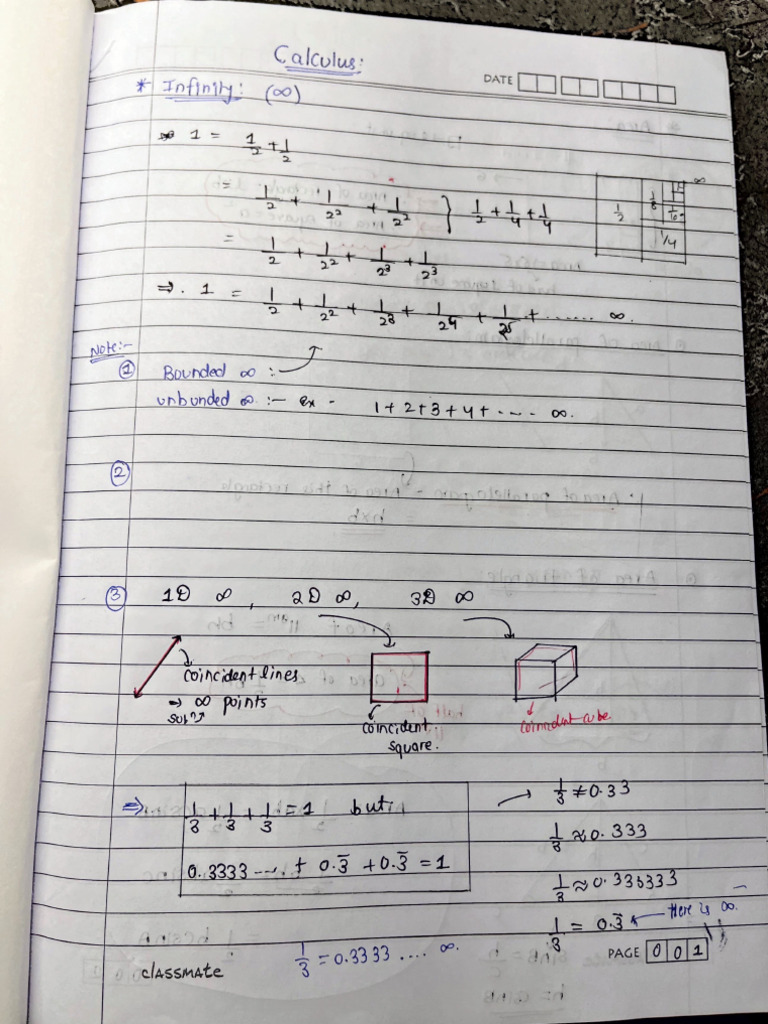 Calculus:
DATE
* Infinity: (∞)
1 = 1/2 + 1/2
= 1/2 + 1/2² + 1/2² } 1/2 + 1/4 + 1/4
1/2 1/8 1/16 1/4 ∞
= 1/2 + 1/2² + 1/2³ + 1/2³
⇒. 1 = 1/2 + 1/2² + 1/2³ + 1/2⁴ + 1/2⁵ + ....... ∞.
Note:-
① Bounded ∞ :-
unbunded ∞ :- ex - 1+2+3+4+ ---- ∞.
②
③ 1D ∞, 2D ∞, 3D ∞
coincident lines
⇒ ∞ points
solⁿ
coincident
square.
coincident cube.
⇒ 1/3 + 1/3 + 1/3 = 1 but
0.3333 ---- + 0.3̅ + 0.3̅ = 1
→ 1/3 ≠ 0.33
1/3 ≈ 0.333
1/3 ≈ 0.333333
1/3 = 0.3̅ ← Here is ∞.
1/3 = 0.3333 .... ∞.
classmate
PAGE 001